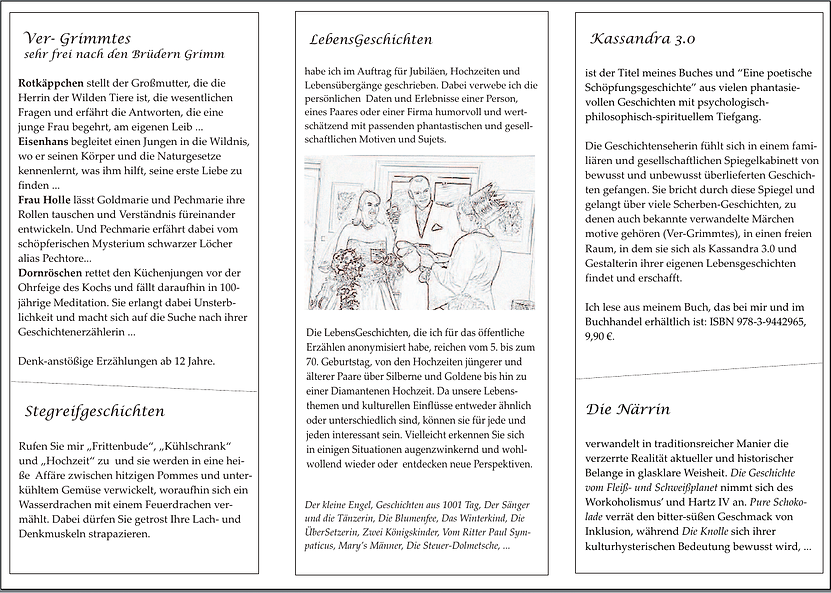 Ver- Grimmtes
sehr frei nach den Brüdern Grimm
Rotkäppchen stellt der Großmutter, die die
Herrin der Wilden Tiere ist, die wesentlichen
Fragen und erfährt die Antworten, die eine
junge Frau begehrt, am eigenen Leib ...
Eisenhans begleitet einen Jungen in die Wildnis,
wo er seinen Körper und die Naturgesetze
kennenlernt, was ihm hilft, seine erste Liebe zu
finden ...
Frau Holle lässt Goldmarie und Pechmarie ihre
Rollen tauschen und Verständnis füreinander
entwickeln. Und Pechmarie erfährt dabei vom
schöpferischen Mysterium schwarzer Löcher
alias Pechtore...
Dornröschen rettet den Küchenjungen vor der
Ohrfeige des Kochs und fällt daraufhin in 100-
jährige Meditation. Sie erlangt dabei Unsterb-
lichkeit und macht sich auf die Suche nach ihrer
Geschichtenerzählerin ...
Denk-anstößige Erzählungen ab 12 Jahre.
Stegreifgeschichten
Rufen Sie mir „Frittenbude“, „Kühlschrank“
und „Hochzeit“ zu und sie werden in eine hei-
ße Affäre zwischen hitzigen Pommes und unter-
kühltem Gemüse verwickelt, woraufhin sich ein
Wasserdrachen mit einem Feuerdrachen ver-
mählt. Dabei dürfen Sie getrost Ihre Lach- und
Denkmuskeln strapazieren.
LebensGeschichten
habe ich im Auftrag für Jubiläen, Hochzeiten und
Lebensübergänge geschrieben. Dabei verwebe ich die
persönlichen Daten und Erlebnisse einer Person,
eines Paares oder einer Firma humorvoll und wert-
schätzend mit passenden phantastischen und gesell-
schaftlichen Motiven und Sujets.
Die LebensGeschichten, die ich für das öffentliche
Erzählen anonymisiert habe, reichen vom 5. bis zum
70. Geburtstag, von den Hochzeiten jüngerer und
älterer Paare über Silberne und Goldene bis hin zu
einer Diamantenen Hochzeit. Da unsere Lebens-
themen und kulturellen Einflüsse entweder ähnlich
oder unterschiedlich sind, können sie für jede und
jeden interessant sein. Vielleicht erkennen Sie sich
in einigen Situationen augenzwinkernd und wohl-
wollend wieder oder entdecken neue Perspektiven.
Der kleine Engel, Geschichten aus 1001 Tag, Der Sänger
und die Tänzerin, Die Blumenfee, Das Winterkind, Die
ÜberSetzerin, Zwei Königskinder, Vom Ritter Paul Sym-
paticus, Mary's Männer, Die Steuer-Dolmetsche, ...
Kassandra 3.0
ist der Titel meines Buches und “Eine poetische
Schöpfungsgeschichte” aus vielen phantasie-
vollen Geschichten mit psychologisch-
philosophisch-spirituellem Tiefgang.
Die Geschichtenseherin fühlt sich in einem fami-
liären und gesellschaftlichen Spiegelkabinett von
bewusst und unbewusst überlieferten Geschich-
ten gefangen. Sie bricht durch diese Spiegel und
gelangt über viele Scherben-Geschichten, zu
denen auch bekannte verwandelte Märchen
motive gehören (Ver-Grimmtes), in einen freien
Raum, in dem sie sich als Kassandra 3.0 und
Gestalterin ihrer eigenen Lebensgeschichten
findet und erschafft.
Ich lese aus meinem Buch, das bei mir und im
Buchhandel erhältlich ist: ISBN 978-3-9442965,
9,90 €.
Die Närrin
verwandelt in traditionsreicher Manier die
verzerrte Realität aktueller und historischer
Belange in glasklare Weisheit. Die Geschichte
vom Fleiß- und Schweißplanet nimmt sich des
Workoholismus' und Hartz IV an. Pure Schoko-
lade verrät den bitter-süßen Geschmack von
Inklusion, während Die Knolle sich ihrer
kulturhysterischen Bedeutung bewusst wird, ...